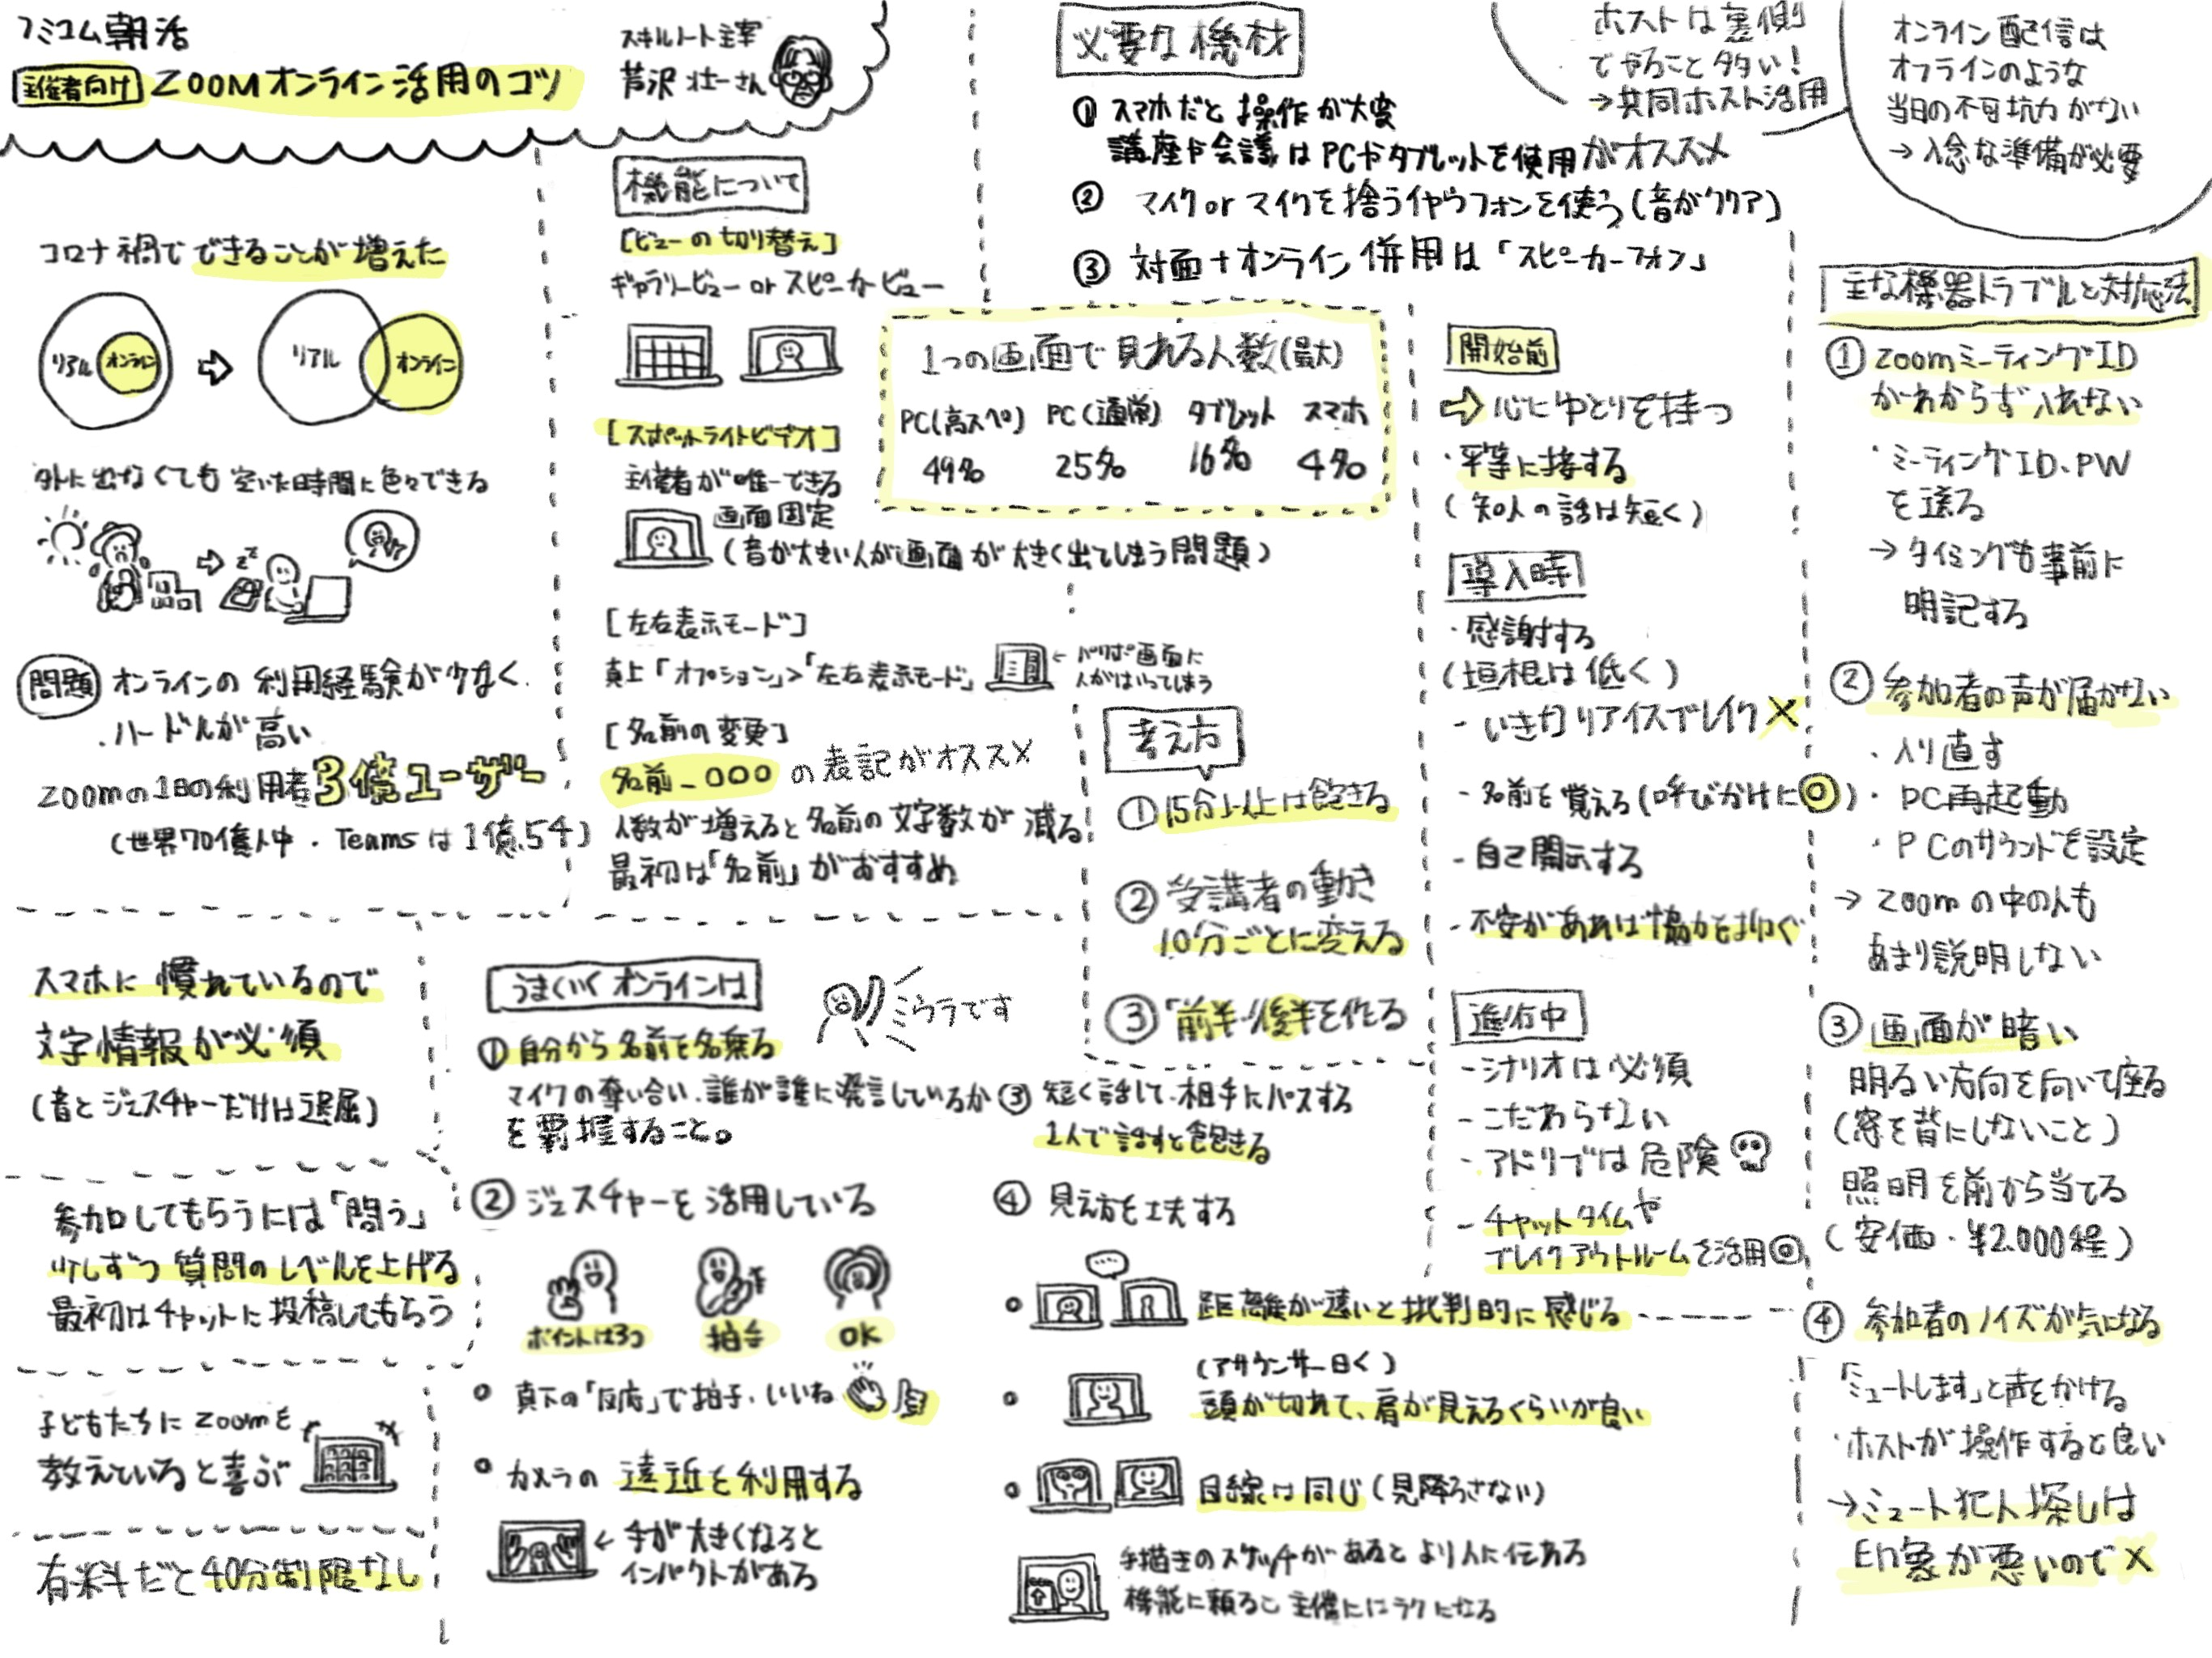 フミコム朝活
主催者向け ZOOMオンライン活用のコツ
スキルノート主宰
芦沢 壮一さん
コロナ禍で できることが増えた
リアル オンライン
リアル オンライン
外に出なくても 空いた時間に色々できる
zz
問題 オンラインの 利用経験が少なく
ハードルが高い
ZOOMの1日の利用者 3億ユーザー
(世界70億人中・Teamsは1億、5千)
機能について
[ビューの切り替え]
ギャラリービュー or スピーカービュー
[スポットライトビデオ]
主催者が唯一できる
画面固定
(音が大きい人が画面が大きく出てしまう問題)
[左右表示モード]
真上「オプション」>「左右表示モード」
← パワポ画面に
人がはいってしまう
[名前の変更]
名前_〇〇〇 の表記がオススメ
人数が増えると名前の文字数が減る
最初は「名前」がおすすめ
必要な機材
① スマホだと操作が大変
講座や会議はPCやタブレットを使用がオススメ
② マイク or マイクを拾うイヤウフォンを使う(音がクリア)
③ 対面+オンライン併用は「スピーカーフォン」
1つの画面で見れる人数(最大)
PC(高スペ) PC(通常) タブレット スマホ
49名 25名 16名 4名
ホストは裏側
でやること多い!
→共同ホスト活用
オンライン配信は
オフラインのような
当日の不可抗力がない
→入念な準備が必要
考え方
① 15分以上は飽きる
② 受講者の動き
10分ごとに変える
③ 「前半/後半を作る
開始前
⇒ 心にゆとりを持つ
・平等に接する
(知人の話は短く)
導入時
・感謝する
(垣根は低く)
- いきなりアイスブレイク ×
- 名前を覚える(呼びかけに◎)
- 自己開示する
- 不安があれば協力を仰ぐ
進行中
- シナリオは必須
- こだわらない
- アドリブは危険
- チャットタイムや
ブレイクアウトルームを活用◎
主な機器トラブルと対応法
① ZoomミーティングID
がわからず入れない
・ミーティングID、PW
を送る
→タイミングも事前に
明記する
② 参加者の声が届かない
・入り直す
・PC再起動
・PCのサウンドを設定
→Zoomの中の人も
あまり説明しない
③ 画面が暗い
明るい方向を向いて座る
(窓を背にしないこと)
照明を前から当てる
(安価・¥2,000程)
④ 参加者のノイズが気になる
「ミュートします」と声をかける
・ホストが操作すると良い
→ミュート犯人探しは
En象が悪いので×
スマホに慣れているので
文字情報が必須
(音とジェスチャーだけは退屈)
参加してもらうには「問う」
少しずつ質問のレベルを上げる
最初はチャットに投稿してもらう
子どもたちにZoomを
教えていると喜ぶ
有料だと40分制限なし
うまくいくオンラインは
ミウラです
① 自分から名前を名乗る
マイクの奪い合い、誰が誰に発言しているか
を掌握すること。
② ジェスチャーを活用している
ポイントは3つ 拍手 OK
・真下の「反応」で拍手、いいね
・カメラの遠近を利用する
← 手が大きくなると
インパクトがある
③ 短く話して、相手にパスする
1人で話すと飽きる
④ 見え方を工夫する
・距離が遠いと批判的に感じる
(アナウンサー曰く)
・頭が切れて、肩が見えるくらいが良い
・目線は同じ(見降ろさない)
・手描きのスケッチがあるとより人に伝わる
機能に頼ると主催にはラクになる